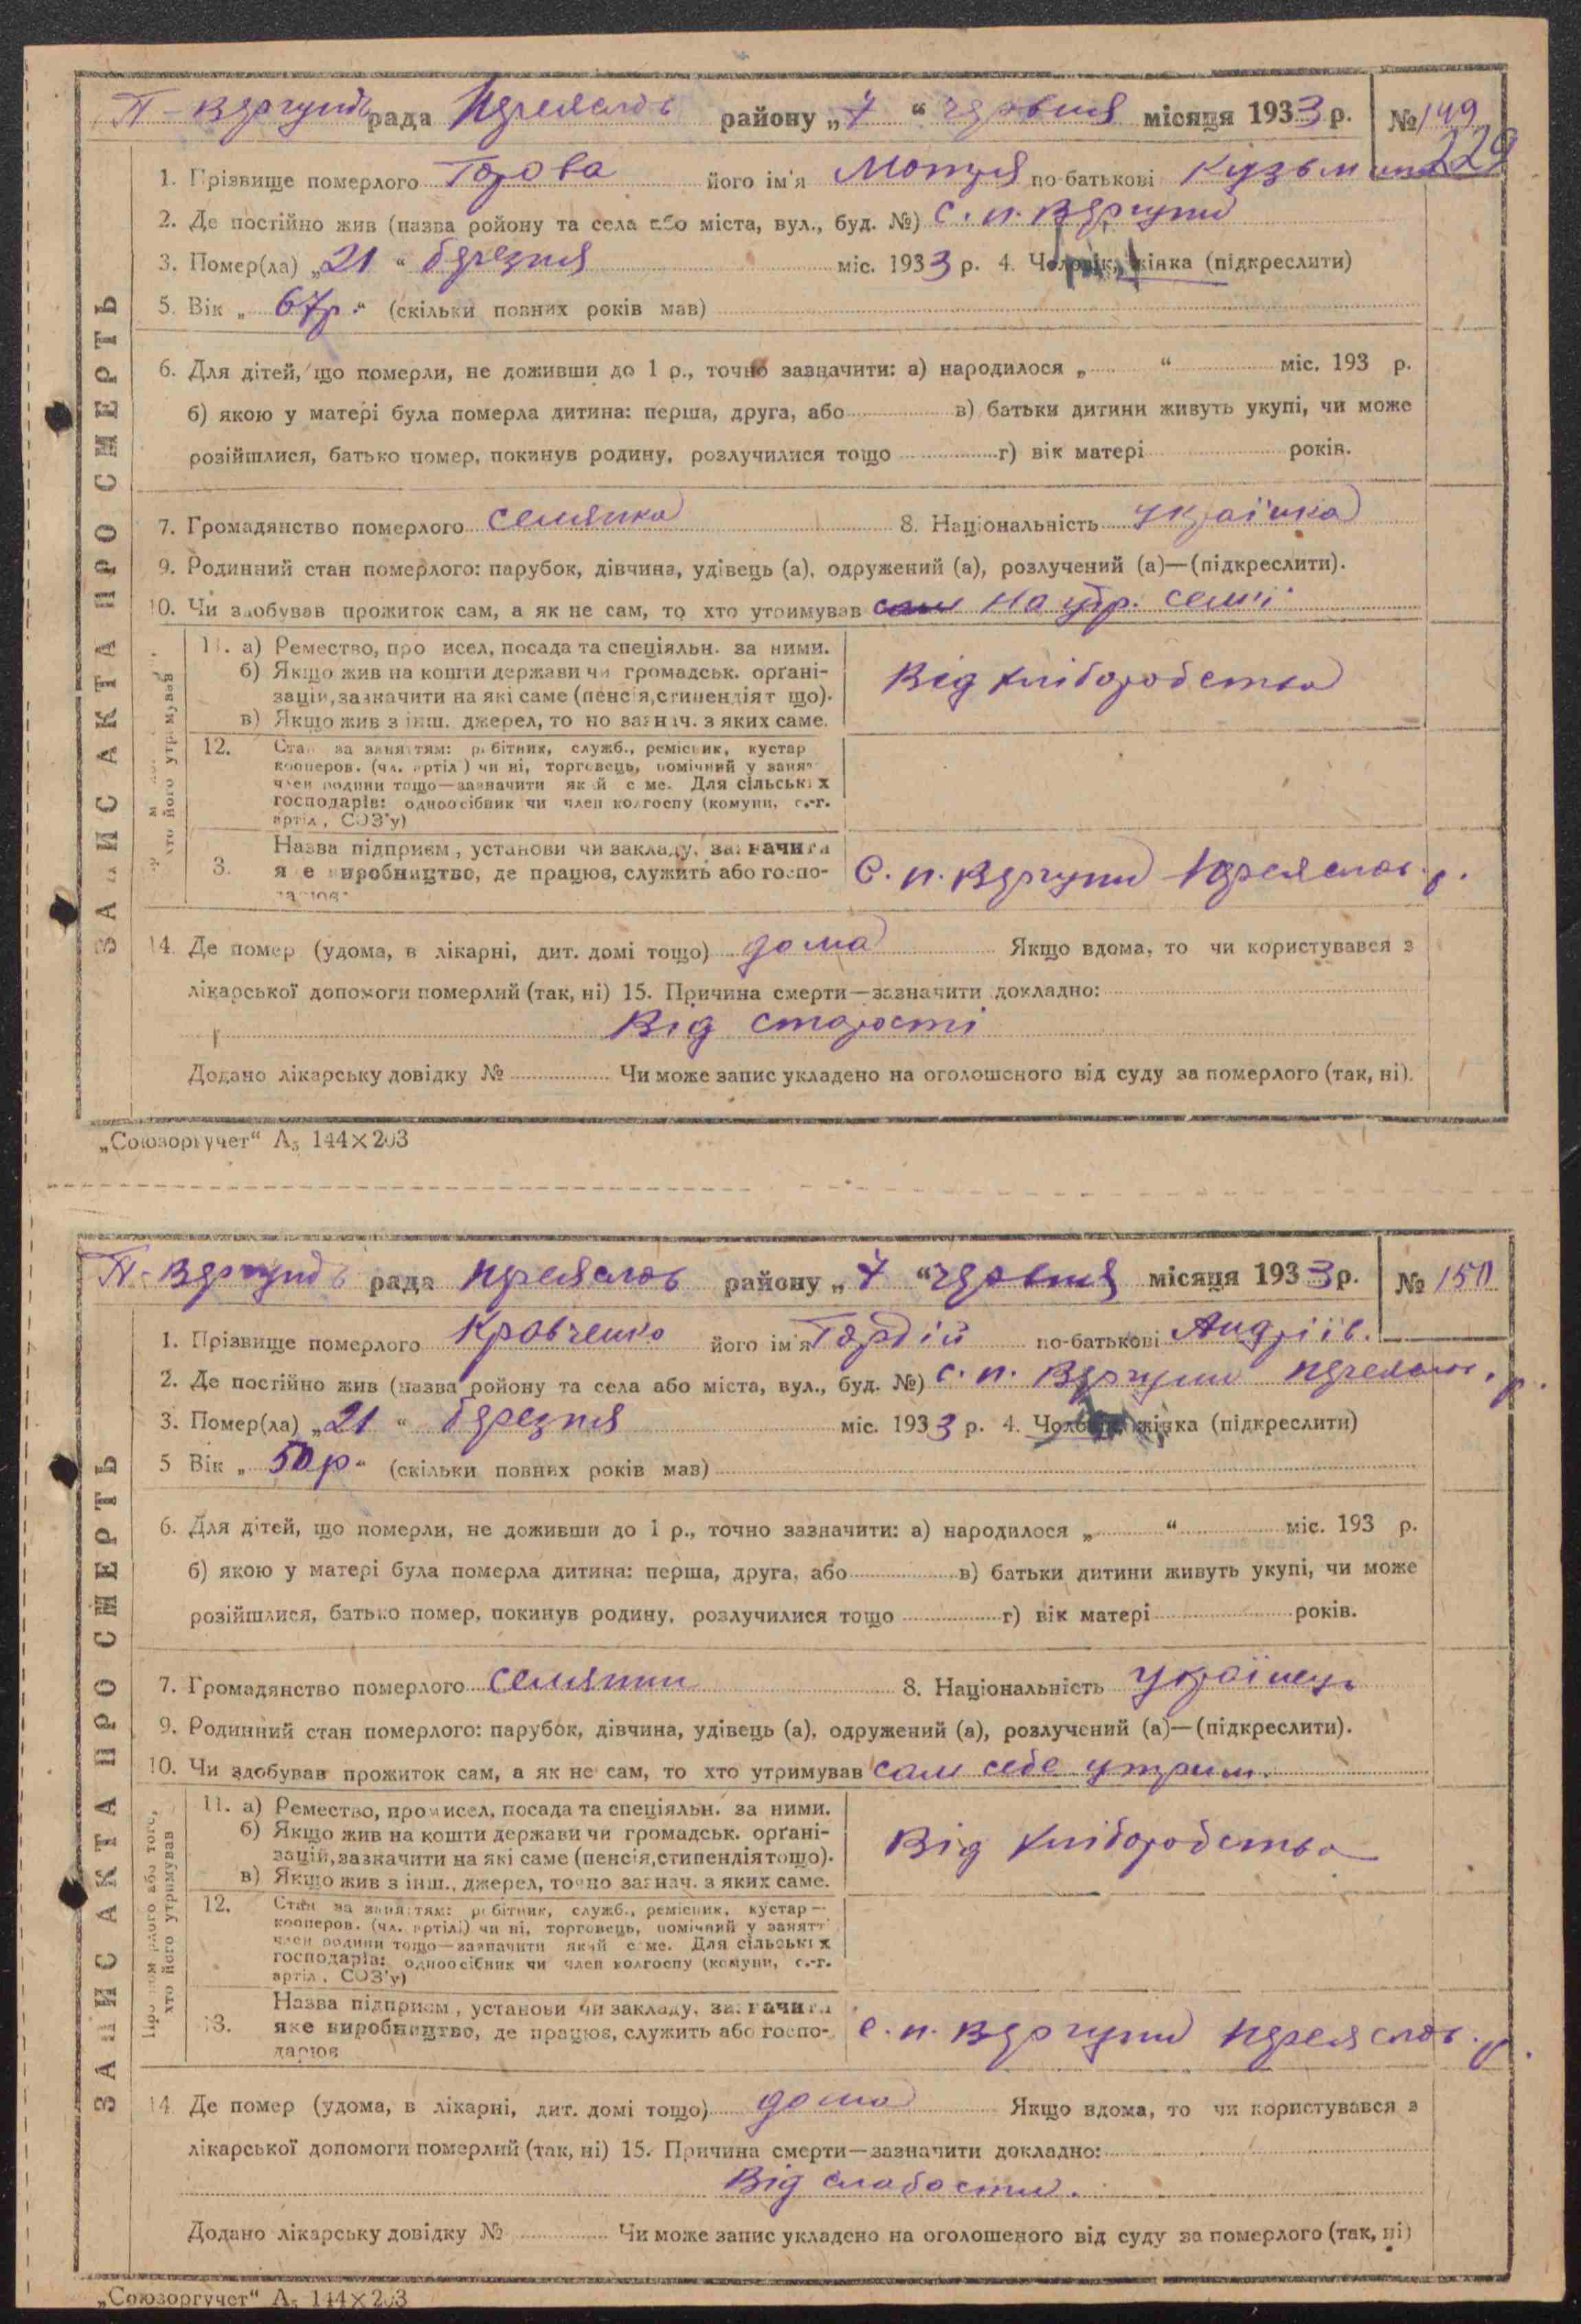 П-Вергунів рада Переяслов району „7“ червня місяця 1933 р. № 149
229
1. Прізвище померлого Горова його ім'я Мотря по-батькові Кузьм
2. Де постійно жив (назва ройону та села або міста, вул., буд. №) с. п. Вергуни
3. Помер(ла) „21“ березня міс. 1933 р. 4. Чоловік, жінка (підкреслити)
5. Вік „67р.“ (скільки повних років мав)
6. Для дітей, що померли, не доживши до 1 р., точно зазначити: а) народилося „ “ міс. 193 р.
б) якою у матері була померла дитина: перша, друга, або в) батьки дитини живуть укупі, чи може
розійшлися, батько помер, покинув родину, розлучилися тощо г) вік матері років.
7. Громадянство померлого селянка 8. Національність українка
9. Родинний стан померлого: парубок, дівчина, удівець (а), одружений (а), розлучений (а)—(підкреслити).
10. Чи здобував прожиток сам, а як не сам, то хто утримував сам на утр. семї
хто його утримував
11. а) Ремество, про исел, посада та спеціяльн. за ними.
б) Якщо жив на кошти держави чи громадськ. орґані-
зацій, зазначити на які саме (пенсія, стипендія т що).
в) Якщо жив з інш. джерел, то но зазнач. з яких саме.
Від хліборобства
12. Стан за заняттям: робітник, служб., ремісник, кустар
кооперов. (чл. артілі) чи ні, торговець, помічний у занят
член родини тощо—зазначити який саме. Для сільських
господарів: одноосібник чи член колгоспу (комуни, с.-г.
артіл, СОЗ'у)
3. Назва підприєм, установи чи закладу, зазначити
яке виробництво, де працює, служить або госпо-
дарює
С. п. Вергуни Переяслов. р.
14. Де помер (удома, в лікарні, дит. домі тощо) дома Якщо вдома, то чи користувався з
лікарської допомоги померлий (так, ні) 15. Причина смерти—зазначити докладно:
Від старості
Додано лікарську довідку № Чи може запис укладено на оголошеного від суду за померлого (так, ні).
ЗАПИС АКТА ПРО СМЕРТЬ
„Союзоргучет“ А₅ 144×203
П-Вергунів рада Переяслов району „7“ червня місяця 1933 р. № 150
1. Прізвище померлого Кравченко його ім'я Гордій по-батькові Андріїв.
2. Де постійно жив (назва ройону та села або міста, вул., буд. №) с. п. Вергуни Переяслов. р.
3. Помер(ла) „21“ березня міс. 1933 р. 4. Чоловік, жінка (підкреслити)
5 Вік „50р“ (скільки повних років мав)
6. Для дітей, що померли, не доживши до 1 р., точно зазначити: а) народилося „ “ міс. 193 р.
б) якою у матері була померла дитина: перша, друга, або в) батьки дитини живуть укупі, чи може
розійшлися, батько помер, покинув родину, розлучилися тощо г) вік матері років.
7. Громадянство померлого селянин 8. Національність українець
9. Родинний стан померлого: парубок, дівчина, удівець (а), одружений (а), розлучений (а)—(підкреслити).
10. Чи здобував прожиток сам, а як не сам, то хто утримував сам себе утрим.
Про померлого або того, хто його утримував
11. а) Ремество, промисел, посада та спеціяльн. за ними.
б) Якщо жив на кошти держави чи громадськ. орґані-
зацій, зазначити на які саме (пенсія, стипендія тощо).
в) Якщо жив з інш., джерел, точно зазнач. з яких саме.
Від хліборобства
12. Стан за заняттям: робітник, служб., ремісник, кустар—
кооперов. (чл. артілі) чи ні, торговець, помічний у занятт
член родини тощо—зазначити який саме. Для сільських
господарів: одноосібник чи член колгоспу (комуни, с.-г.
артіл, СОЗ'у)
13. Назва підприєм, установи чи закладу, зазначити
яке виробництво, де працює, служить або госпо-
дарює
с. п. Вергуни Переяслов. р.
14 Де помер (удома, в лікарні, дит. домі тощо) дома Якщо вдома, то чи користувався з
лікарської допомоги померлий (так, ні) 15. Причина смерти—зазначити докладно:
Від слабости.
Додано лікарську довідку № Чи може запис укладено на оголошеного від суду за померлого (так, ні)
ЗАПИС АКТА ПРО СМЕРТЬ
„Союзоргучет“ А₅ 144×203